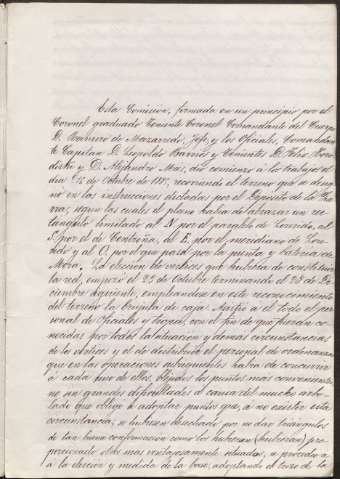 Esta Comision, formada en un principio por el
Coronel graduado Teniente Coronel Comandante del Cuerpo
D. Ramiro de Mazarredo, Jefe, y los Oficiales, Comandante
Capitan D. Leopoldo Barrios y Tenientes D. Felix
y D. Alejandro Mas, dió comienzo á los trabajos el
dia 15 de Octubre de 1885, recorriendo el terreno que se desig-
nó en las instrucciones dictadas por el Depósito de la Gue-
rra; segun las cuales el plano habia de abrazar un rec-
tángulo limitado al N. por el paralelo de
S. por el de al E. por el meridiano de
y al O. por el que pasa por la punta y
La eleccion de vértices que habian de constituir
la red, empezó el 23 de Octubre terminando el 28 de Di-
ciembre siguiente, empleandose en este reconocimiento
del terreno la brújula de caja. Asistió á él todo el per-
sonal de Oficiales y tropa, con el fin de que fueran co-
nocidas por todos la situacion y demas circunstancias
de los vértices y el de distribuir el personal de ordenanzas
que en las operaciones subsiguientes habia de concurrir
á cada uno de ellos. Elegidos los puntos mas convenientes
no sin grandes dificultades á causa del mucho arbo-
lado que obligó á adoptar puntos que, á no existir esta
circunstancia, se hubiesen desechado por no dar triángulos
de tan buena conformacion como los hubiesen (hubieran) pro-
porcionado otros mas ventajosamente situados, se procedió
á la eleccion y medida de la base, adoptando el trozo de la